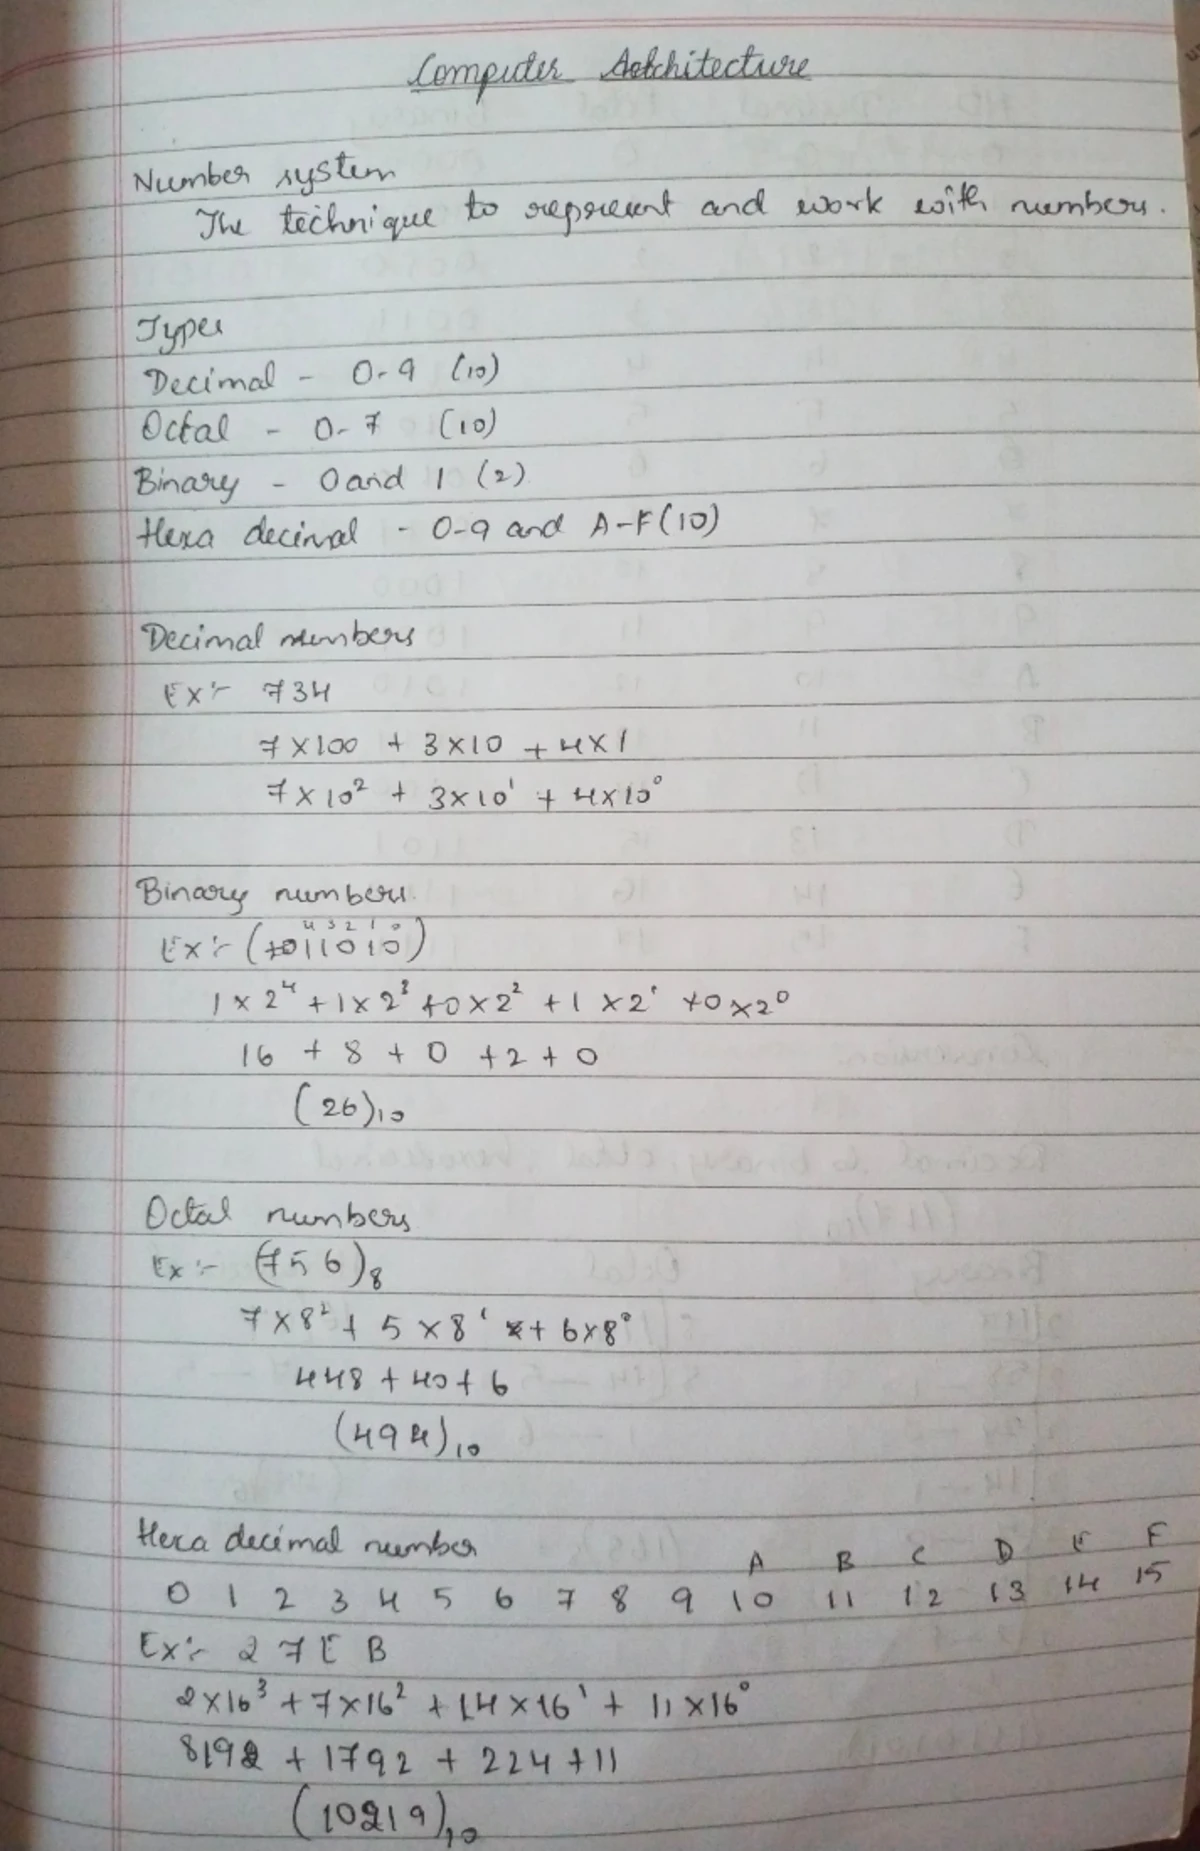 Computer Architecture
Number system
The technique to represent and work with numbers.
Types
Decimal - 0-9 (10)
Octal - 0-7 (10)
Binary - 0 and 1 (2)
Hexa decimal - 0-9 and A-F (10)
Decimal numbers
Ex:- 734
7×100 + 3×10 + 4×1
7×10² + 3×10¹ + 4×10⁰
Binary numbers.
4 3 2 1 0
Ex:- (11010)
1×2⁴ + 1×2³ + 0×2² + 1×2¹ + 0×2⁰
16 + 8 + 0 + 2 + 0
(26)₁₀
Octal numbers
Ex:- (756)₈
7×8² + 5×8¹ + 6×8⁰
448 + 40 + 6
(494)₁₀
Hexa decimal number
A B C D E F
0 1 2 3 4 5 6 7 8 9 10 11 12 13 14 15
Ex:- 2 7 E B
2×16³ + 7×16² + 14×16¹ + 11×16⁰
8192 + 1792 + 224 + 11
(10219)₁₀